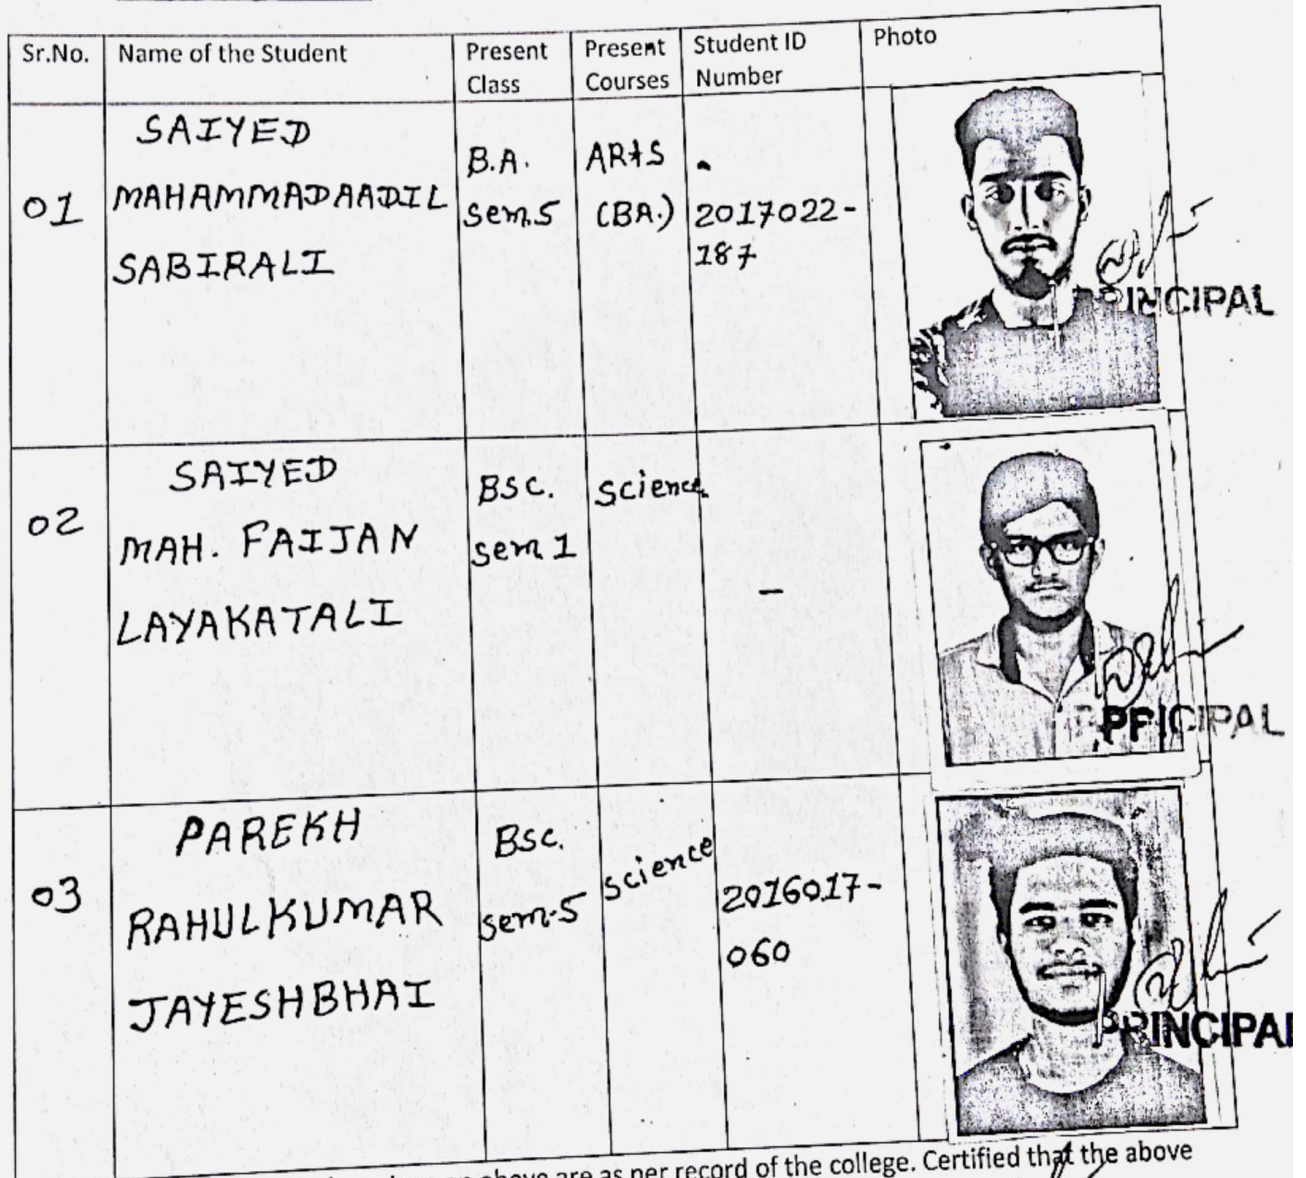 Sr.No.
Name of the Student
Present
Class
Present
Courses
Student ID
Number
Photo
01
SAIYED
MAHAMMADAADIL
SABIRALI
B.A.
sem.5
ARtS
(BA.)
2017022-
187
PRINCIPAL
02
SAIYED
MAH. FAIJAN
LAYAKATALI
BSC.
sem 1
science
-
PRICIPAL
03
PAREKH
RAHULKUMAR
JAYESHBHAI
BSC.
sem-5
science
2016017-
060
PRINCIPAL
above are as per record of the college. Certified that the above